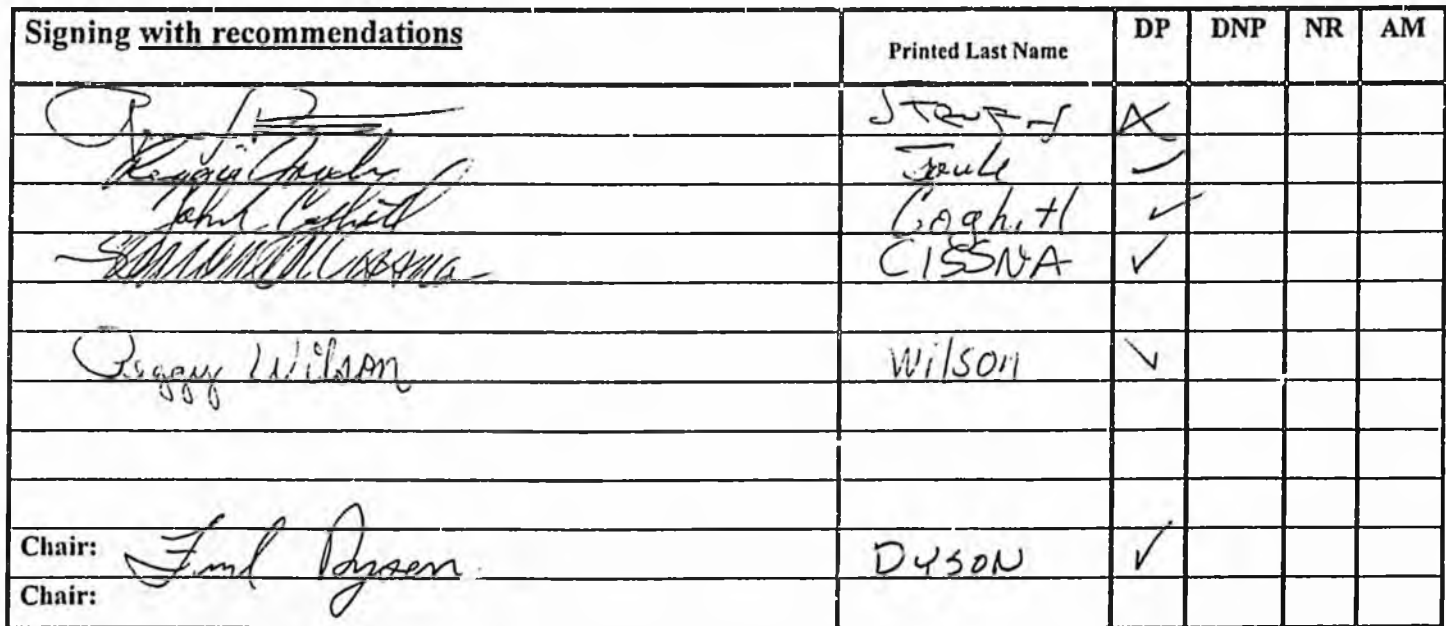 Signing with recommendations Printed Last Name DP DNP NR AM
Joule
John Coghill Coghill ✓
CISSNA ✓
Peggy Wilson Wilson ✓
Chair: Fred Dyson DYSON ✓
Chair: